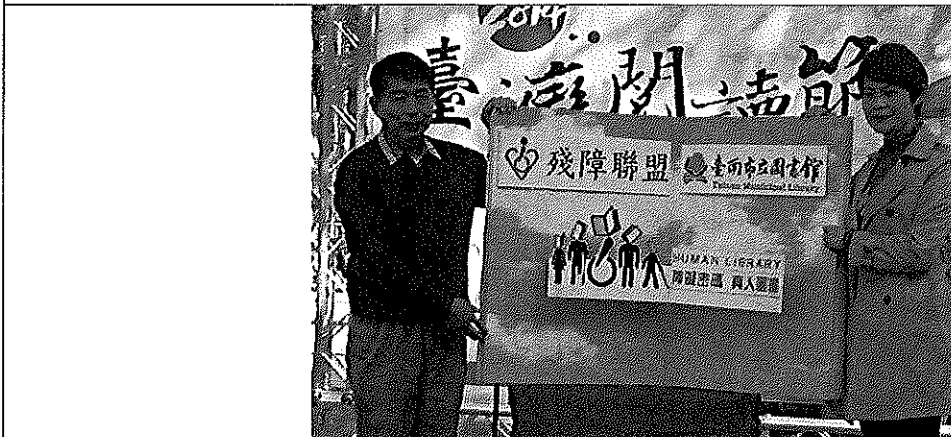 2014
臺灣閱讀節
殘障聯盟
臺南市立圖書館
Tainan Municipal Library
HUMAN LIBRARY
障礙密碼 真人圖書